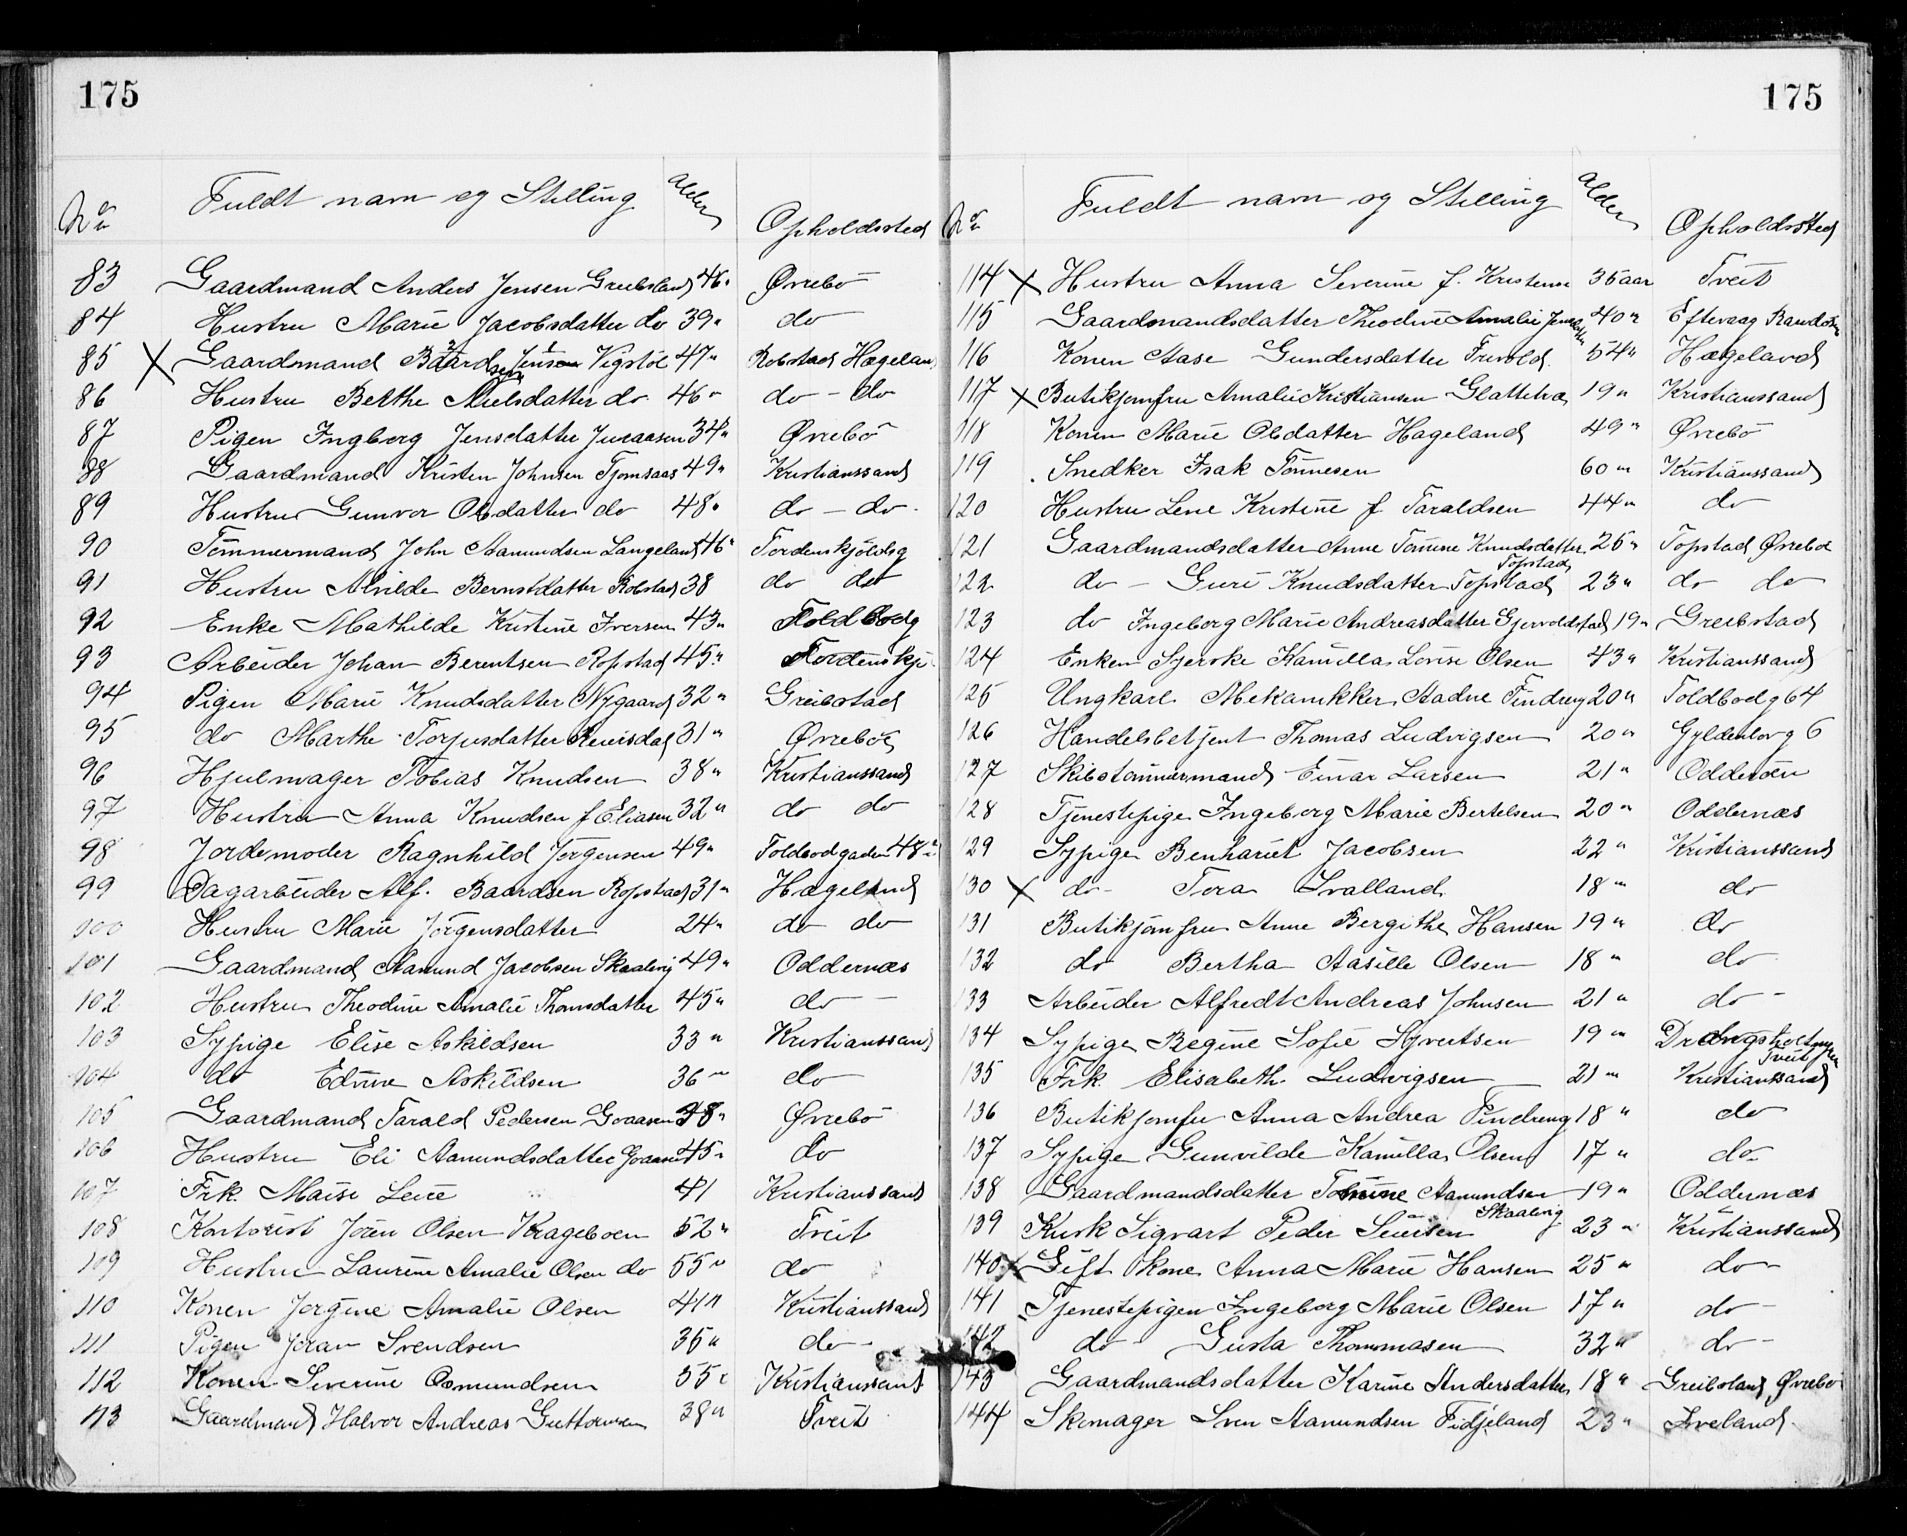 175
No Fuldt navn og Stilling alder Opholdssted
83 Gaardmand Anders Jensen Greibsland 46" Øvrebö
84 Hustru Marie Jacobsdatter do 39" do
85 X Gaardmand Baardsen Jens Vigstöl 47" Robstad Hægeland
86 Hustru Berthe Nielsdatter do 46" do - do
87 Pigen Ingborg Jensdatter 34" Øvrebö
88 Gaardmand Kristen Johnsen Tjomsaas 49" Kristianssand
89 Hustru Gunvor Olsdatter do 48" do - do
90 Tömmermand John Aamundsen Langeland 46" Tordenskjöldsg
91 Hustru Alvilde Berntsdatter Robstad 38 do do
92 Enke Mathilde Kristine Iversen 43" Toldbodg
93 Arbeider Johan Berentsen Ropstad 45" Tordenskj
94 Pigen Marie Knudsdatter Nygaard 32" Greibstad
95 do Marthe Torjusdatter 31" Øvrebö
96 Hjulmager Tobias Knudsen 38" Kristianssand
97 Hustru Anna Knudsen f Eliasen 32" do do
98 Jordemoder Ragnhild Jörgensen 49" Toldbodgaden 48
99 Dagarbeider Alf. Baardsen Ropstad 31" Hægeland
100 Hustru Marie Jörgensdatter 24" do do
101 Gaardmand Aamund Jacobsen Skaalevig 49" Oddernæs
102 Hustru Theodine Amalie Thomsdatter 45" do -
103 Sypige Elise Askildsen 33" Kristianssand
104 do Edine Askildsen 36" do
105 Gaardmand Tarald Pedersen Goaasen 48" Øvrebö
106 Hustru Eli Aamundsdatter Goaasen 45" do
107 Frk. Maise Leire 41 Kristianssand
108 Kontorist Jörn Olsen Krageboen 52" Tveit
109 Hustru Laurine Amalie Olsen do 55" do
110 Konen Jörgine Amalie Olsen 41" Kristianssand
111 Pigen Joran Svendsen 35" do -
112 Konen Severine Osmundsen 55" Kristianssand
113 Gaardmand Halvor Andreas Guttormsen 38" Tveit
175
No Fuldt navn og Stilling alder Opholdssted
114 X Hustru Anna Severine f. Kristense 35 aar Tveit
115 Gaardmandsdatter Theodine Amalie Jensdatter 40" Eftevaag Randösun
116 Konen Aase Gundersdatter Frivold 54" Hægeland
117 X Butikjomfru Amalie Kristiansen Glattetræ 19" Kristianssand
118 Konen Marie Olsdatter Hageland 49" Øvrebö
119 Snedker Isak Tönnesen 60" Kristianssand
120 Hustru Lene Kristine f Taraldsen 44" do
121 Gaardmandsdatter Anne Tomine Knudsdatter Topstad 25" Topstad Øvrebö
122 do - Guri Knudsdatter Topstad 23" do do
123 do Ingeborg Marie Andreasdatter Gjervoldstad 19" Greibstad
124 Enken Sjerske Kamilla Lovise Olsen 43" Kristianssand
125 Ungkarl Mekanikker Aadne Tindreng 20" Toldbodg 64
126 Handelsbetjent Thomas Ludvigsen 20" Gyldenlovg 6
127 Skibstömmermand Einar Larsen 21" Odderöen
128 Tjenestepige Ingeborg Marie Bertelsen 20" Oddernæs
129 Sypige Benhariet Jacobsen 22" Kristianssand
130 X do - Tora Svalland 18" do
131 Butikjomfru Anne Bergithe Hansen 19" do
132 do Bertha Aasille Olsen 18" do
133 Arbeider Alfredt Andreas Johnsen 21" do -
134 Sypige Regine Sofie Syvertsen 19" Drangsholt Tveit
135 Frk. Elisabeth Ludvigsen 21" Kristianssand
136 Butikjomfru Anna Andrea Tindreng 18" do
137 Sypige Gunvilde Kamilla Olsen 17" do
138 Gaardmandsdatter Tomine Aamundsen Skaalevig 19" Oddernæs
139 Kusk Sigvart Peder Seiersen 23" Kristianssand
140 X Gift Kone Anna Marie Hansen 25" do
141 Tjenestepigen Ingeborg Marie Olsen 17" do -
142 do Gusta Thommasen 32" do -
143 Gaardmandsdatter Karine Andersdatter 18" Greibsland Øvrebö
144 Skomager Sven Aamundsen Fidjeland 23" Iveland